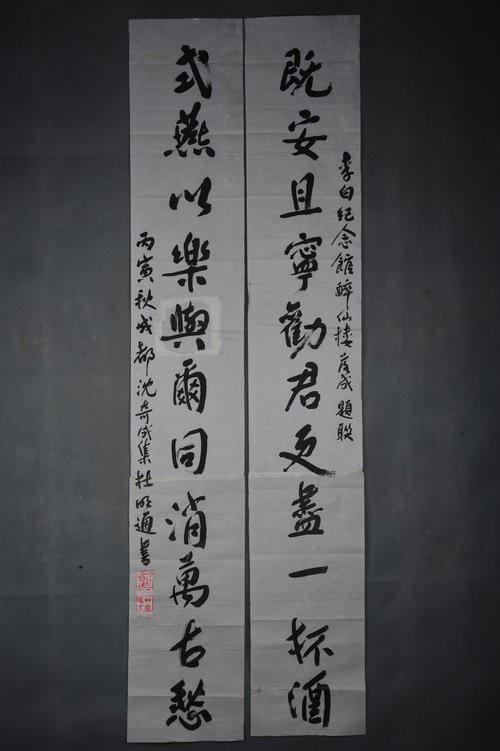 李白纪念館醉仙楼落成題联
既安且寧勸君更盡一杯酒
式燕以樂與爾同消萬古愁
丙寅秋成都沈奇成集杜明通書